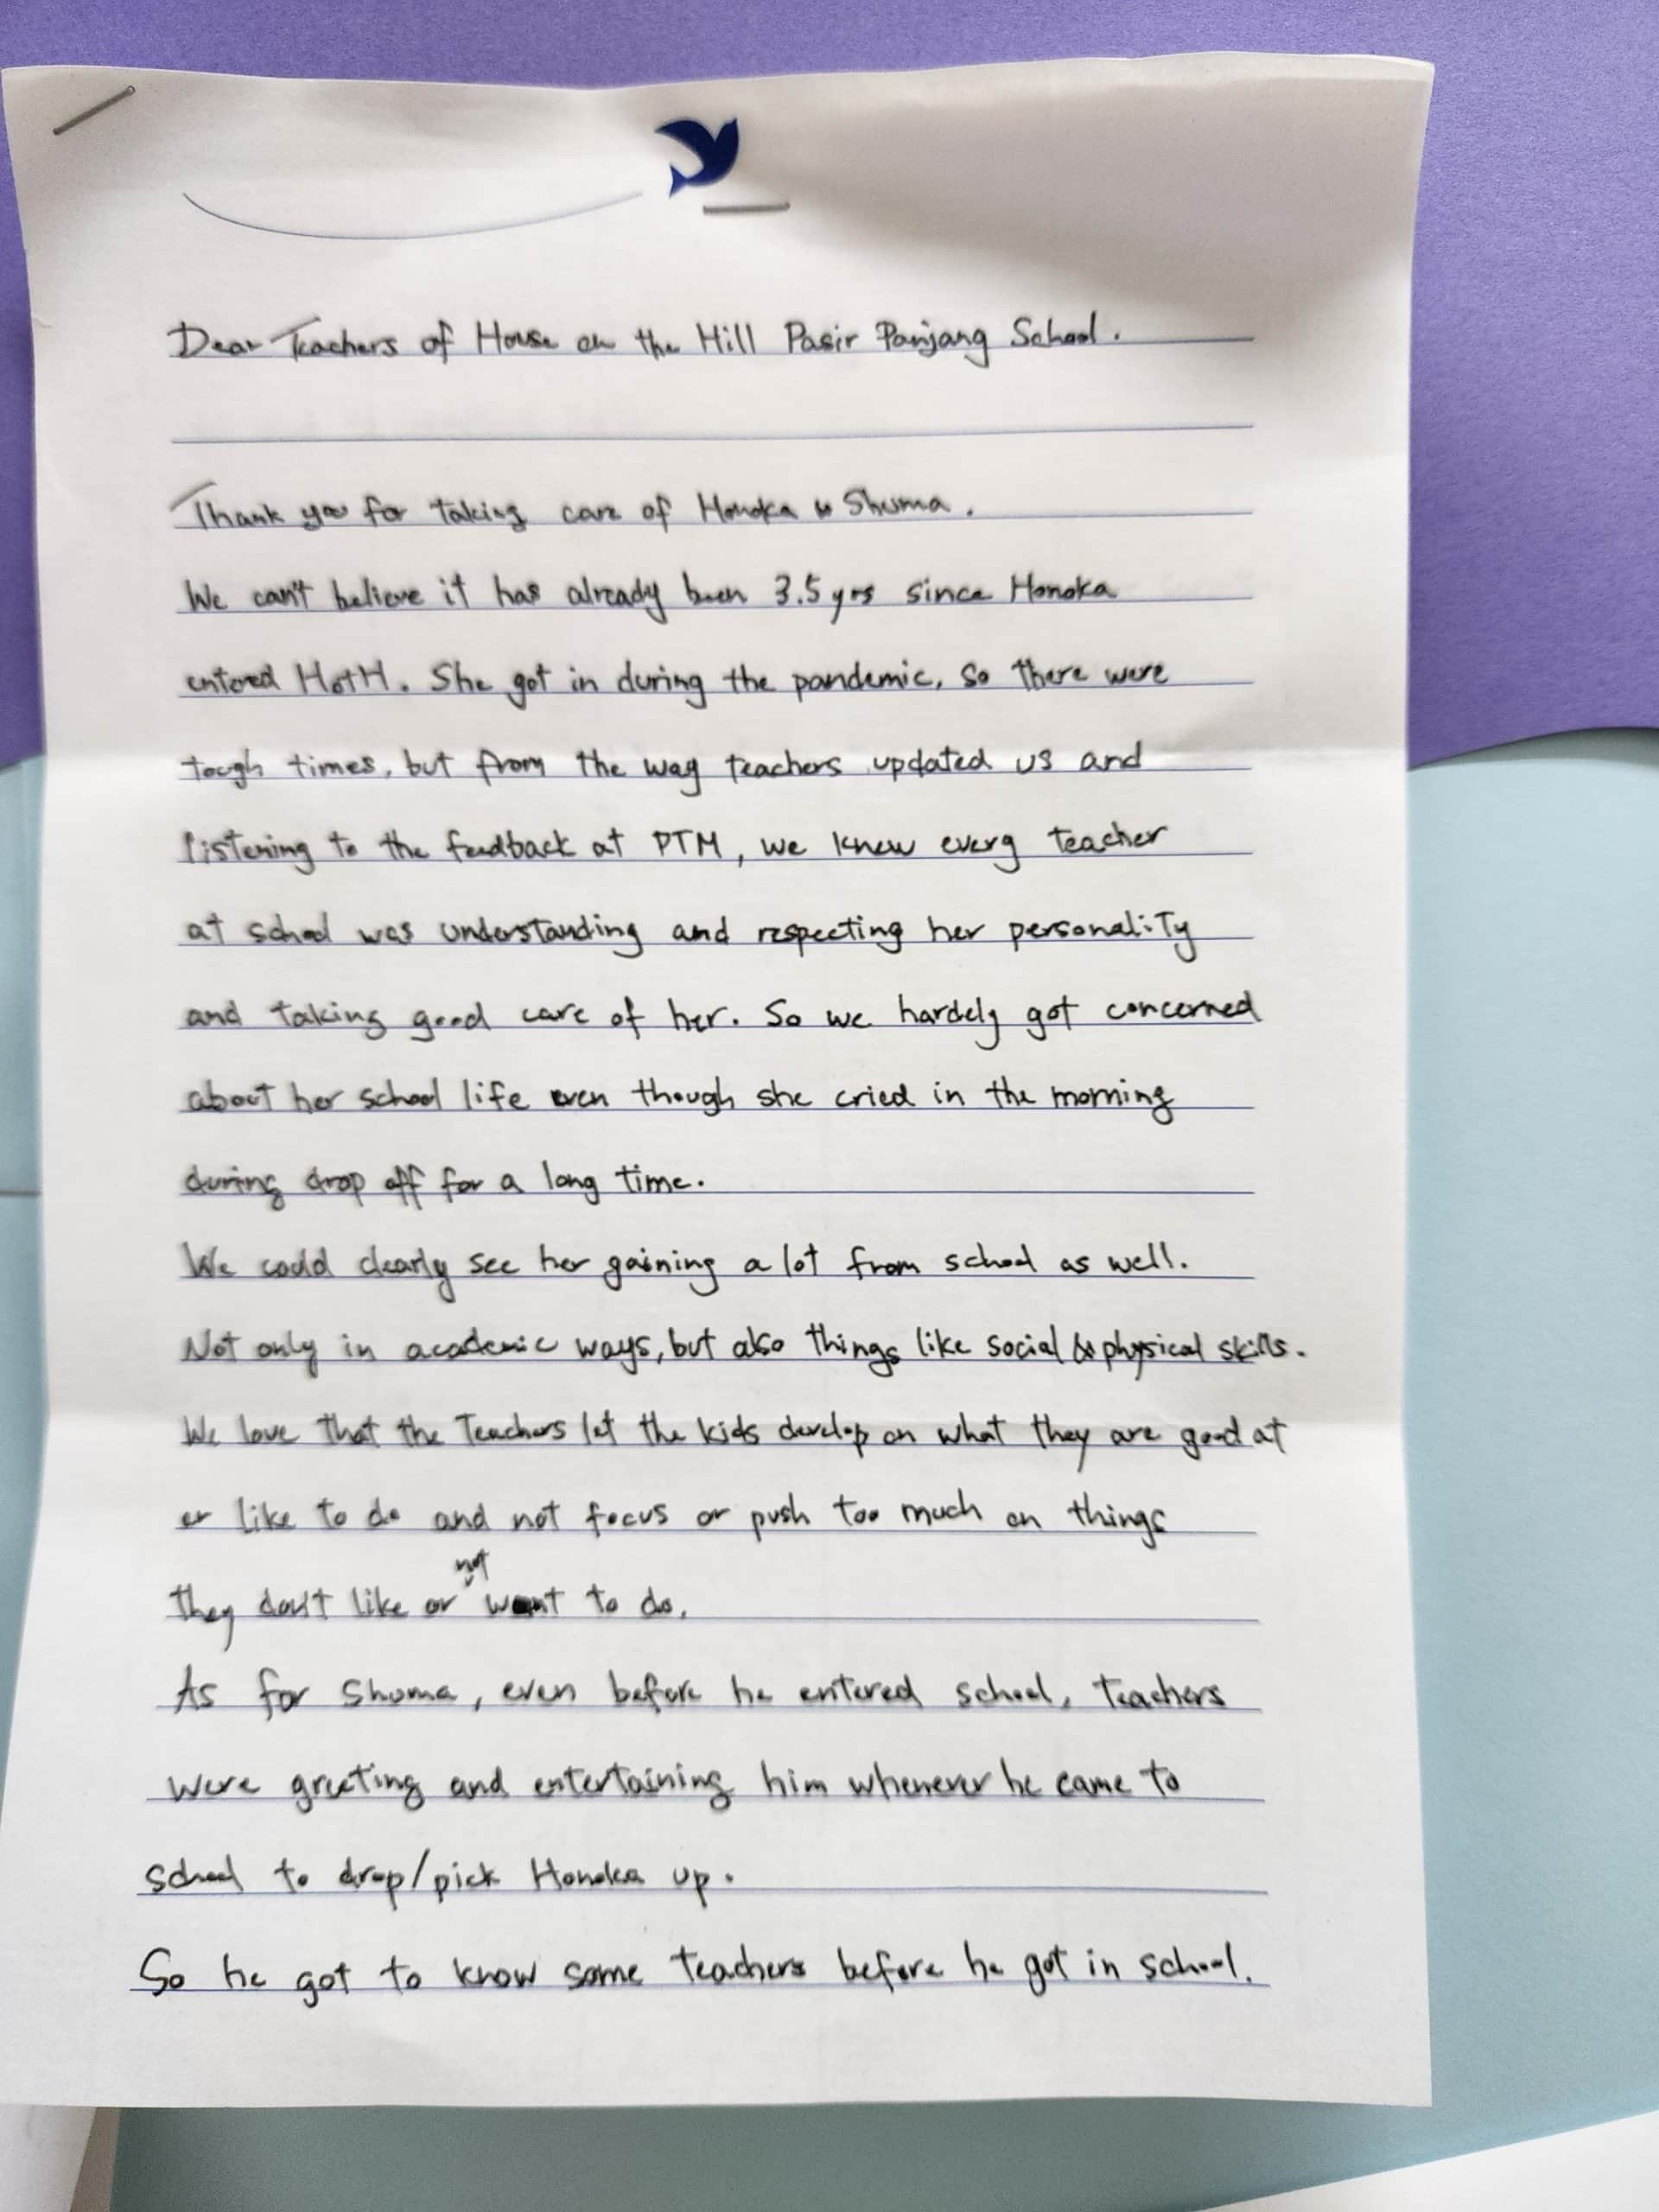 Dear Teachers of House on the Hill Pasir Panjang School.
Thank you for taking care of Honoka & Shuma.
We can't believe it has already been 3.5 yrs since Honoka
entered HotH. She got in during the pandemic, so there were
tough times, but from the way teachers updated us and
listening to the feedback at PTM, we knew every teacher
at school was understanding and respecting her personality
and taking good care of her. So we hardely got concerned
about her school life even though she cried in the morning
during drop off for a long time.
We could clearly see her gaining a lot from school as well.
Not only in academic ways, but also things like social & physical skills.
We love that the teachers let the kids develop on what they are good at
or like to do and not focus or push too much on things
they don't like or not want to do.
As for Shuma, even before he entered school, teachers
were greeting and entertaining him whenever he came to
school to drop/pick Honoka up.
So he got to know some teachers before he got in school.